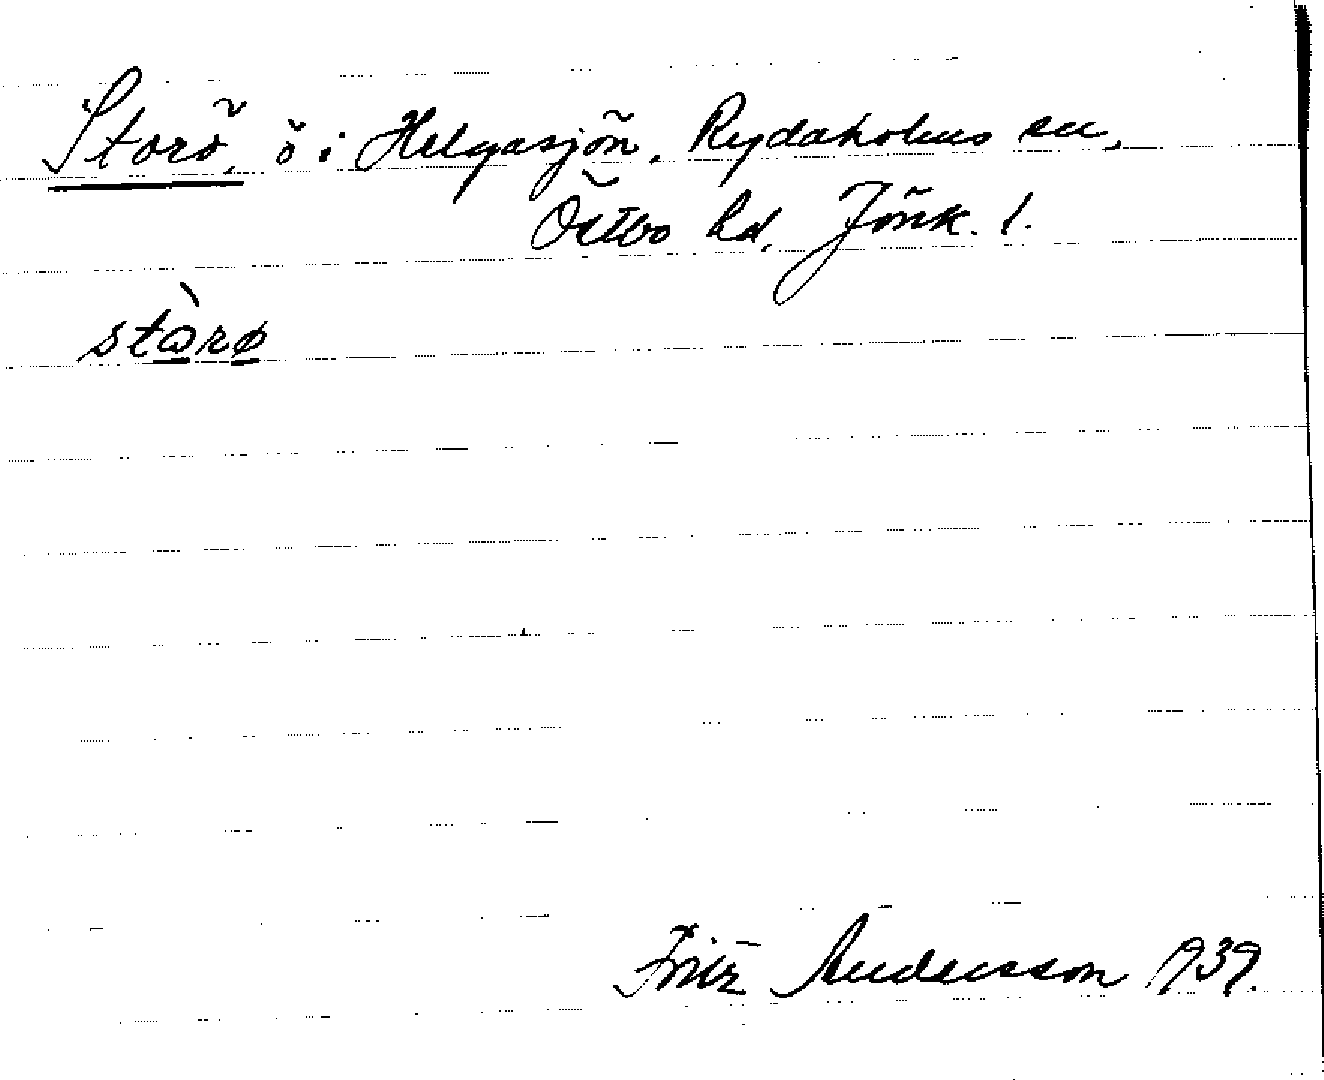 Storö, ö i Helgasjön, Rydaholms sn,
Östbo hd, Jönk. l.
stòrø
Fritz Andersson 1939.